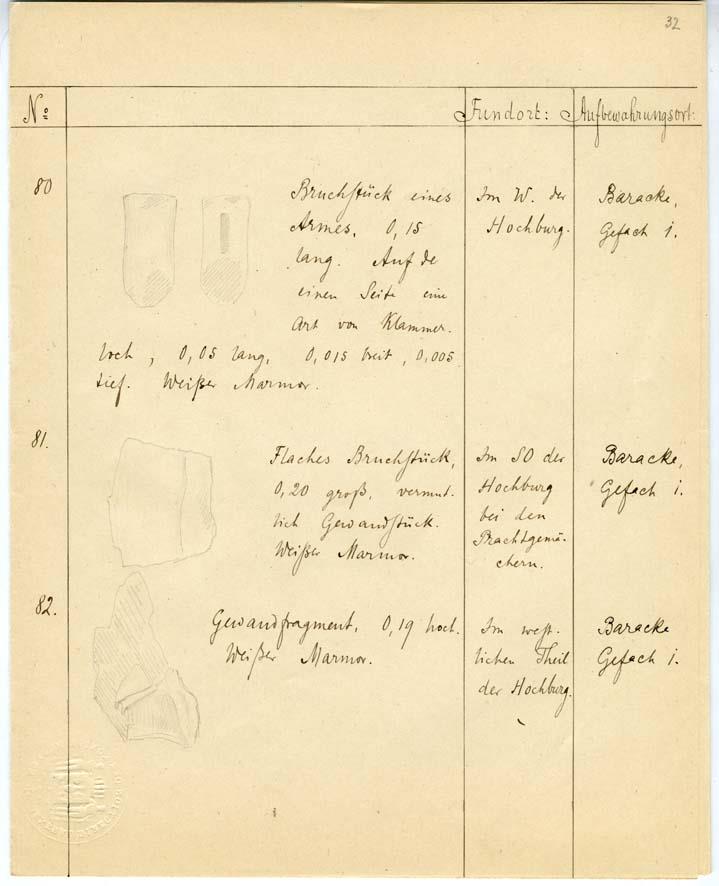 32
No Fundort: Aufbewahrungsort:
80
Bruchstück eines
Armes, 0,15
lang. Auf de
einen Seite eine
Art von Klammer-
loch, 0,05 lang, 0,015 breit, 0,005
tief. Weißer Marmor.
Im W. der
Hochburg.
Baracke,
Gefach 1.
81.
Flaches Bruchstück,
0,20 groß, vermut-
lich Gewandstück.
Weißer Marmor.
Im SO der
Hochburg
bei den
Prachtgemä-
chern.
Baracke,
Gefach 1.
82.
Gewandfragment, 0,19 hoch.
Weißer Marmor.
Im west-
lichen Theil
der Hochburg.
Baracke
Gefach 1.